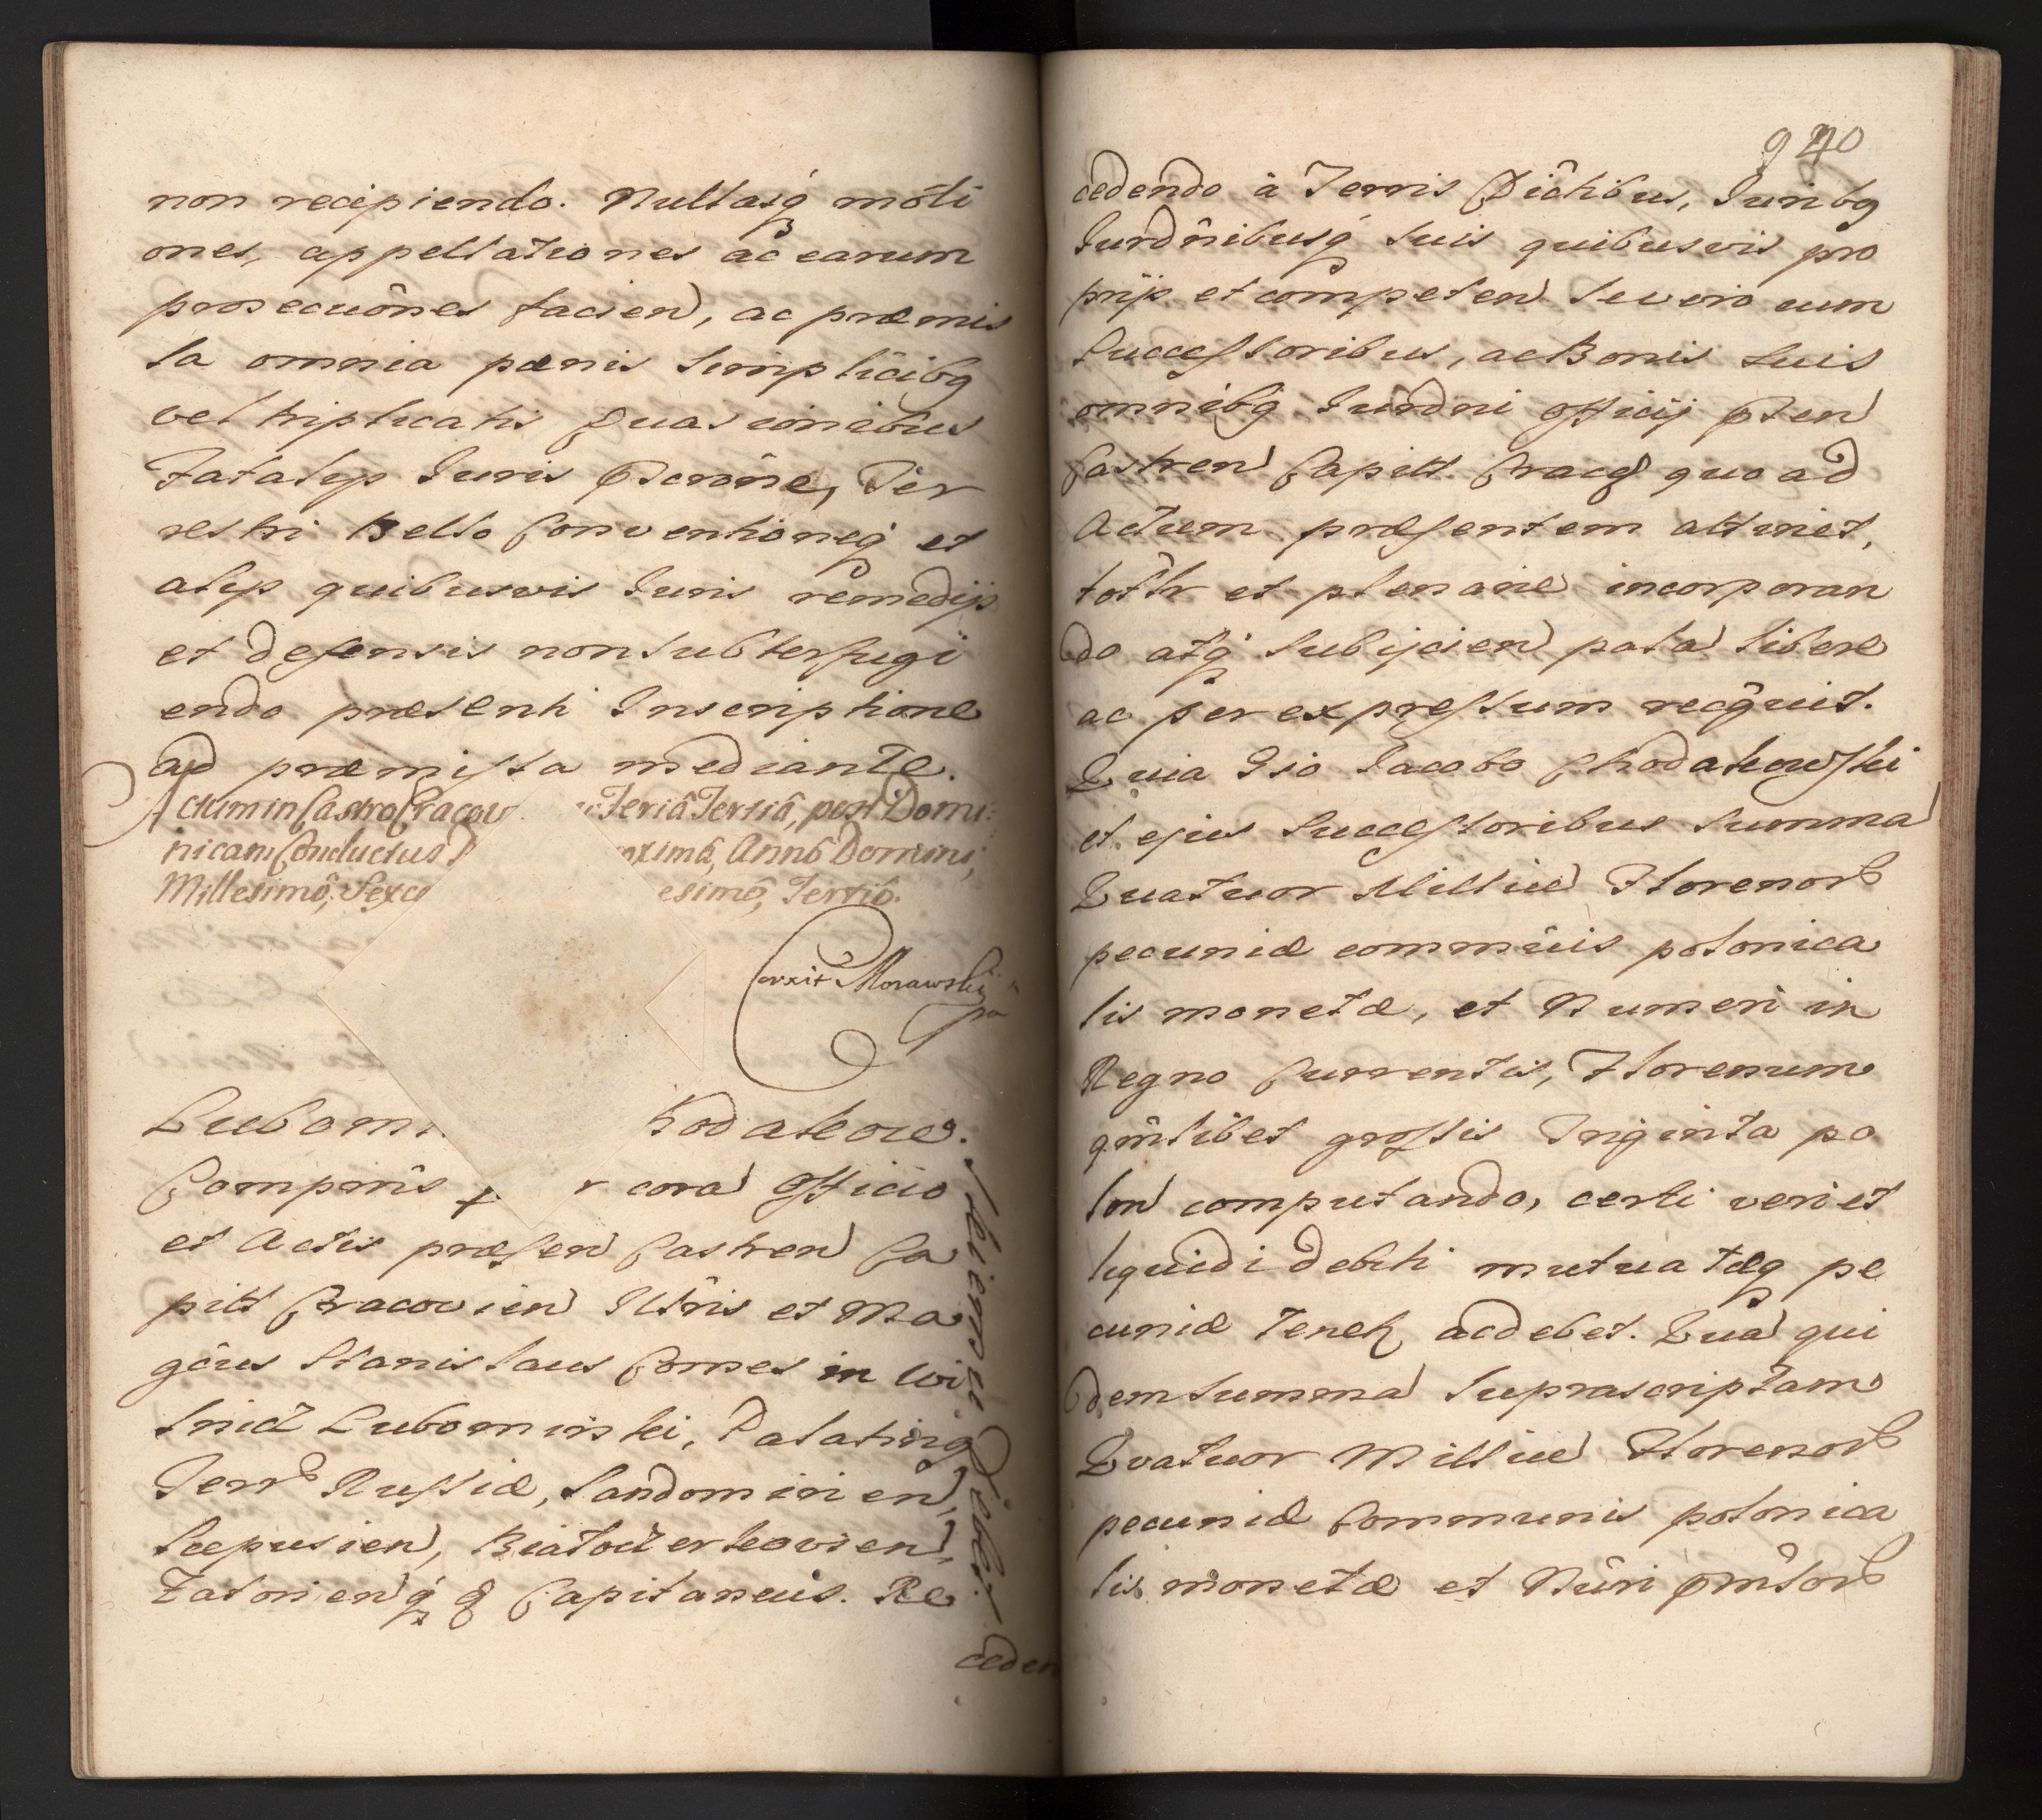 non recipiendo. Nullasq̃ mõti
ones, appellationes ac earum
prosecuõnes facien, ac præmis
sa omnia pænis simplicibq
vel triplicatis Euasionibus
Fatalijs Iuris Pscrõne, Ter
restri Bello Conventioneq̃ et
alijs quibusvis Iuris remedijs
et defensis non subterfugi
endo præsenti Inscriptione
ad præmissa mediante.
Actum in Castro Cracov Feriâ Tertiâ, post Domi-
nicam Conductus P oximâ, Annô Domini,
Millesimô, Sexce esimô, Tertiô.
Corxit Morawski
Lubomi hodakow.
Comparẽns p r cora Officio
et Actis præsen Castren Ca
pitt Cracovien Illris et Ma
gcus Stanislaus Comes in Wi
snicz Lubomirski, Palatinq
Terr Russiæ, Sandomirien,
Scepusien, Białocerkovien,
Zatorienq̃ g Capitaneus. Re
Obligationis Debit
ceden
940
cedendo à Terris Dictibus, Juribq
Iurdñibusq̃ suis quibusvis pro
prijs et competen se vero cum
Successoribus, ac Bonis suis
omnibq Iurdni officij Psen
Castren Capitt Cracq quo ad
Actum præsentem attinet,
totlr et plenarie incorporan
do atq̃ subijcien pala libere
ac per expressum recqvit.
Quia Gso Jacobo Chodakowski
et ejus Successoribus summa
Quatuor Millium Florenor
pecuniæ commũis polonica
lis monetæ, et Numeri in
Regno Currentis, Florenum
qmlibet grossis Triginta po
lon computando, certi veri et
liquidi debiti mutuatæq pe
cuniæ Tenetr ac debet. Qua qui
dem summa suprascriptam
Quatuor Millium Florenor
pecuniæ Communis polonica
lis monetæ et Nũri Pmsor